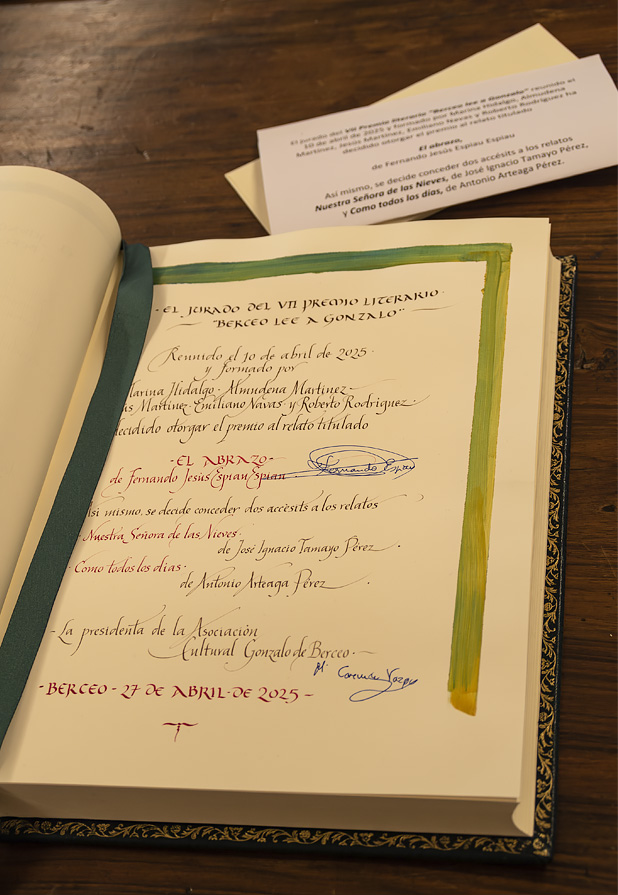 El jurado del VII Premio literario "Berceo lee a Gonzalo" reunido el
10 de abril de 2025 y formado por Marina Hidalgo, Almudena
Martínez, Jesús Martínez, Emiliano Navas y Roberto Rodríguez ha
decidido otorgar el premio al relato titulado
El abrazo,
de Fernando Jesús Espiau Espiau
Así mismo, se decide conceder dos accèsits a los relatos
Nuestra Señora de las Nieves, de José Ignacio Tamayo Pérez,
y Como todos los días, de Antonio Arteaga Pérez.
·EL JURADO DEL VII PREMIO LITERARIO·
"BERCEO LEE A GONZALO"
Reunido el 10 de abril de 2025·
y formado por
arina Hidalgo· Almudena Martínez·
ús Martínez·Emiliano Navas· y Roberto Rodríguez·
ecidido otorgar el premio al relato titulado
-EL ABRAZO-
de Fernando Jesús Espiau Espiau
Fernando Espiau
Así mismo, se decide conceder dos accèsits a los relatos
·Nuestra Señora de las Nieves·
de José Ignacio Tamayo Pérez·
·Como todos los días·
de Antonio Arteaga Pérez·
-La presidenta de la Asociación
Cultural Gonzalo de Berceo·
Mª Carmen
-BERCEO-27 DE ABRIL·DE 2025-